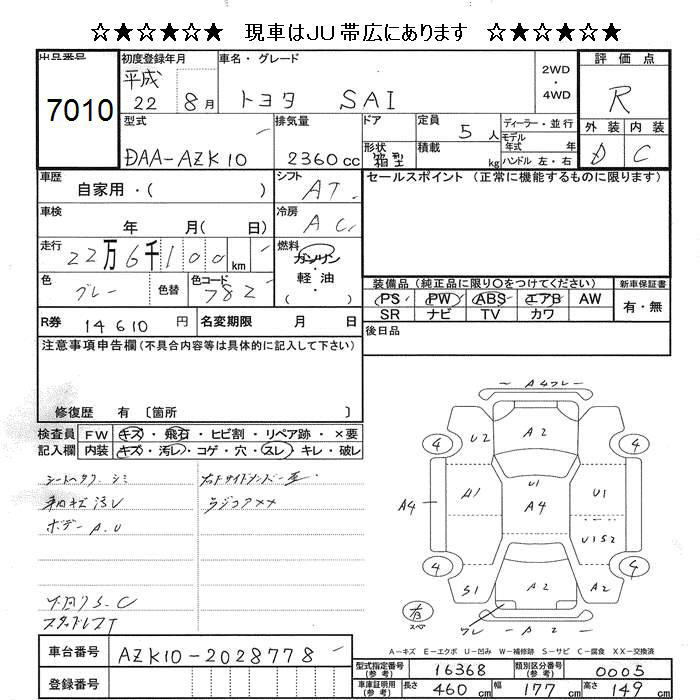 ☆★☆★☆★ 現車はJU帯広にあります ☆★☆★☆★
出品番号 初度登録年月 車名・グレード 2WD・4WD 評価点
7010 平成22 8月 トヨタ SAI R
型式 排気量 ドア 定員 5人 ディーラー・並行 外装 内装
DAA-AZK10 2360cc 形状 箱型 積載 kg モデル年式 年 D C
ハンドル 左・右
車歴 自家用・( ) シフト AT セールスポイント (正常に機能するものに限ります)
車検 年 月( 日) 冷房 AC
走行 22万6千100km 燃料 ガソリン・軽油
色 グレー 色替 色コード 782 装備品 (純正品に限り○をつけてください) 新車保証書
PS PW ABS エアB AW 有・無
SR ナビ TV カワ
R券 14610円 名変期限 月 日 後日品
注意事項申告欄 (不具合内容等は具体的に記入して下さい)
修復歴 有 〔箇所 〕
検査員 FW キズ・飛石・ヒビ割・リペア跡・×要
記入欄 内装 キズ・汚レ・コゲ・穴・スレ・キレ・破レ
シミ
汚レ ラジコアXX
ボデーA.U
下回りS.C
スタッドレス
A4
U2 A2 4 4
A1 U1 A4 U1
A4 U1S2
4 4
S1 A2 A2
A2
有 スペア
A-キズ E-エクボ U-凹み W-補修跡 S-サビ C-腐食 XX-交換済
車台番号 AZK10-2028778
登録番号
型式指定番号(参考) 16368 類別区分番号(参考) 0005
車庫証明用(参考) 長さ 460cm 幅 177cm 高さ 149cm